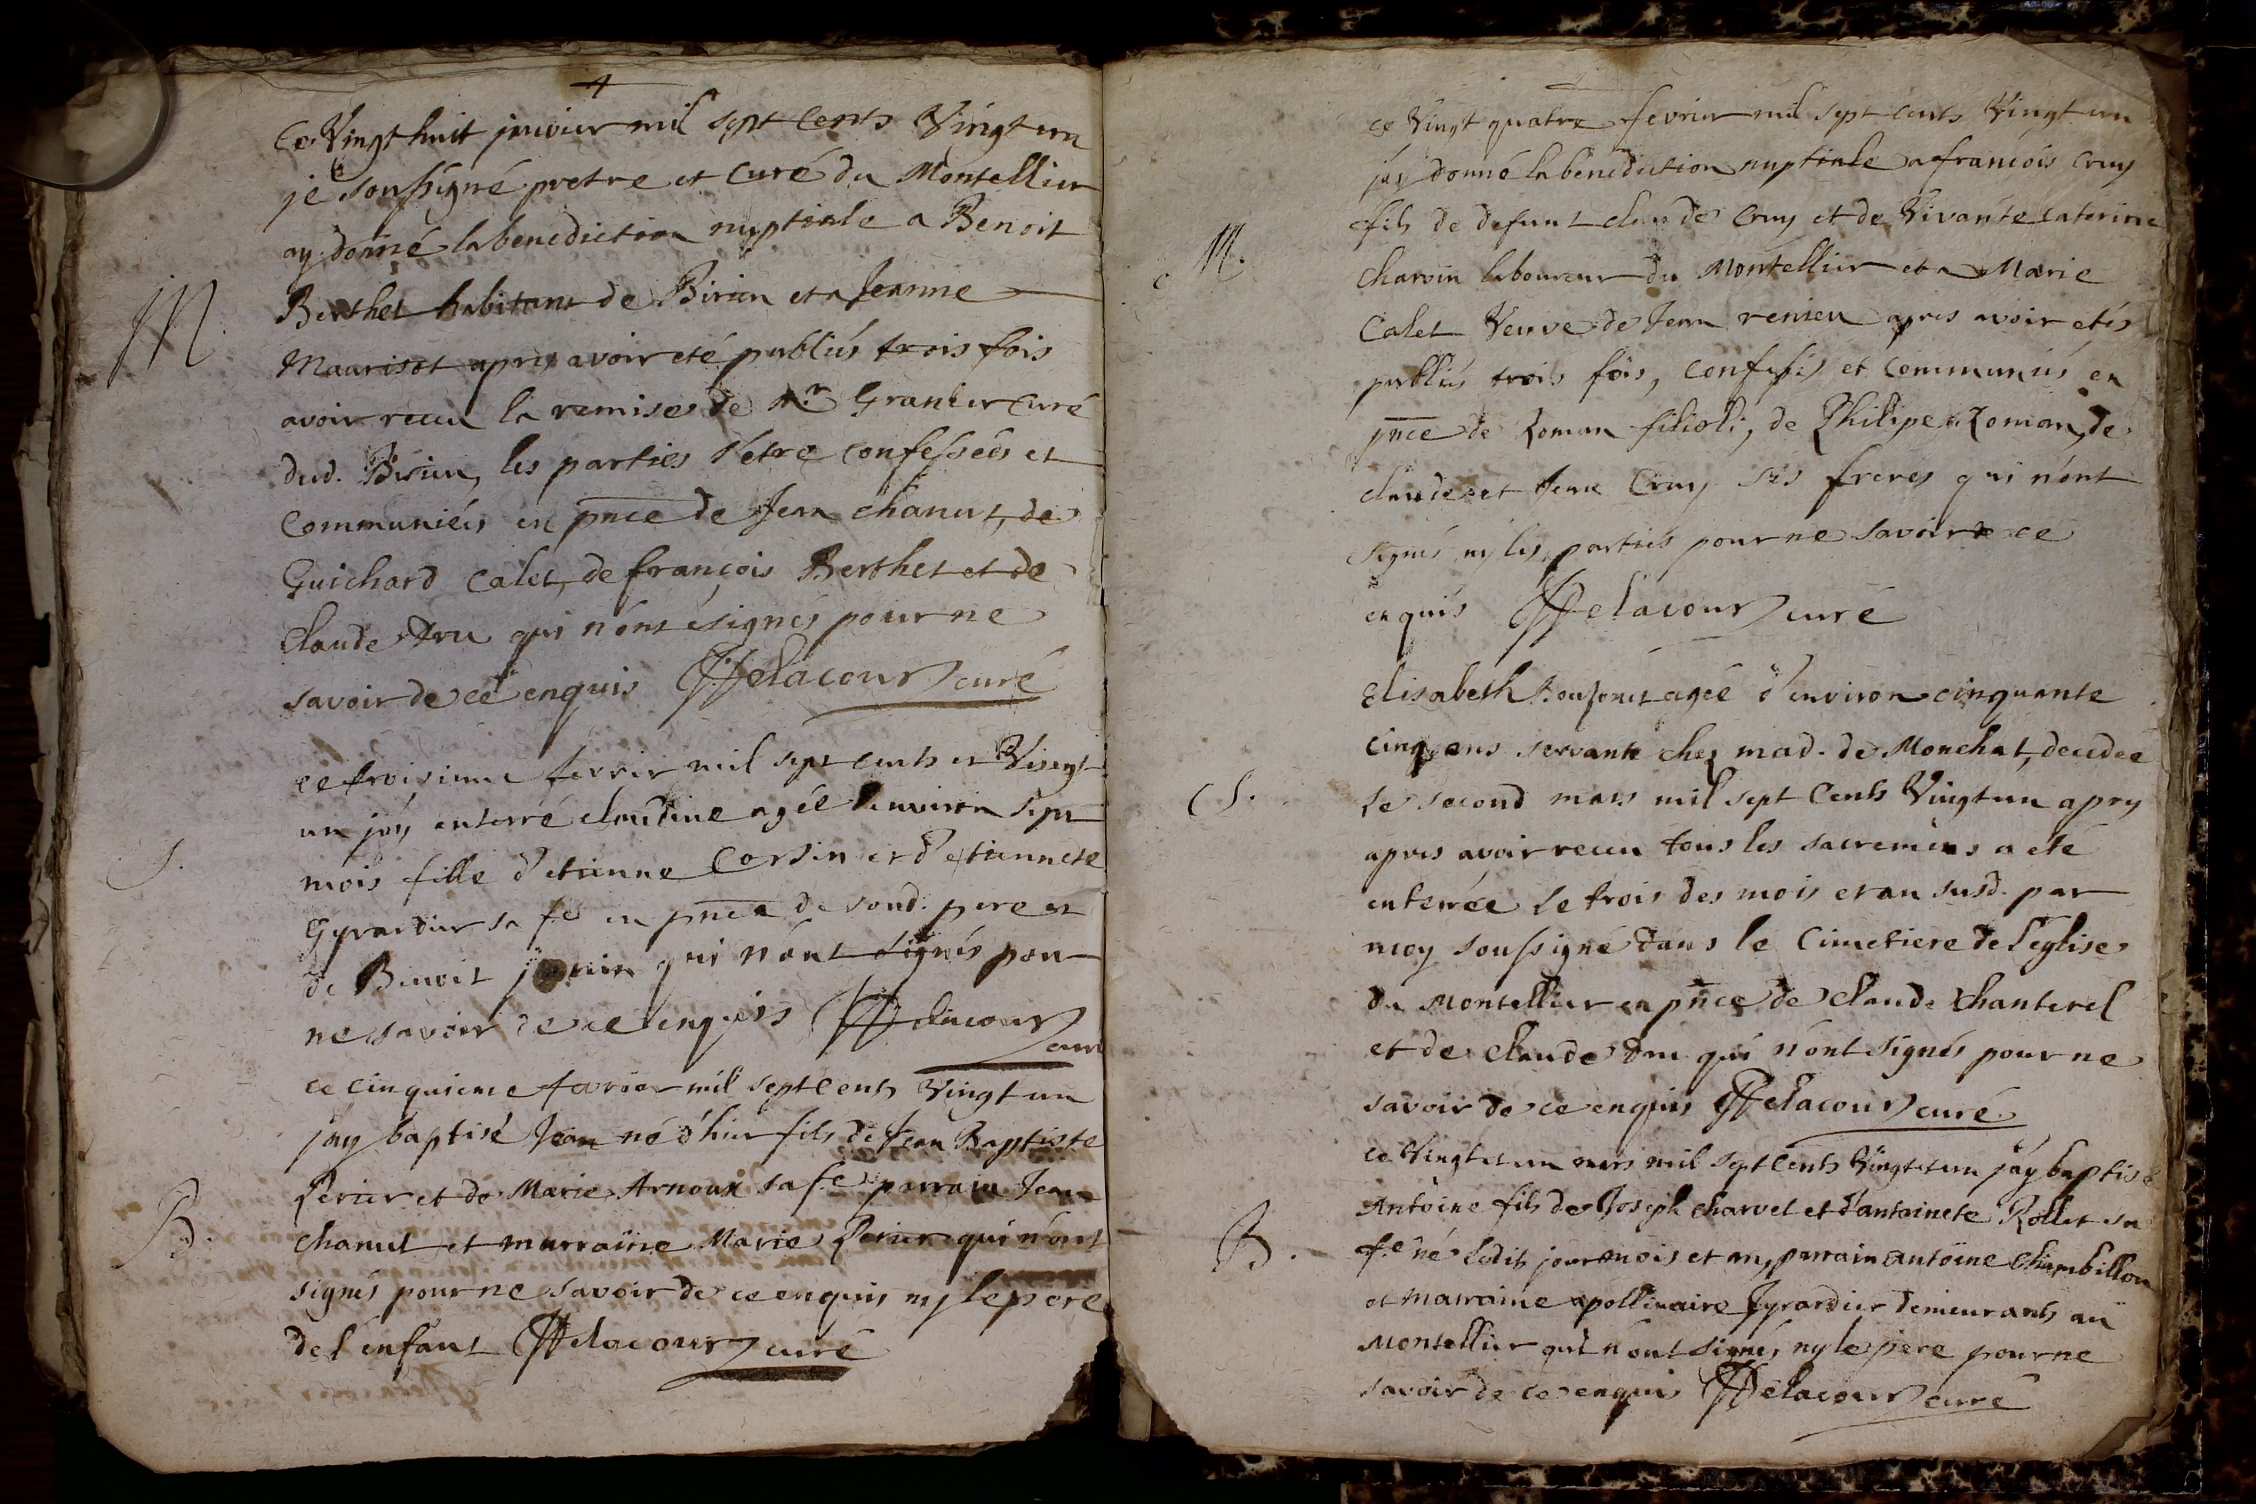 Ce Vingt huit janvier mil sept Cents Vingt un
je soussigné pretre et Curé du Montellier
ay donné la benediction nuptiale a Benoit
M.
Berthet habitant de Birieu et a Jeanne
apres avoir eté publiés trois fois
avoir receu la remise de Mr. Curé
dud. Birieu, les parties s'etre confessées et
communiées en pnce de Jean Chanut, de
Guichard Calet, de françois Berthet et de
Claude Dru qui n'ont signés pour ne
savoir de ce enquis Delacour curé
ce troisieme fevrier mil sept cents et Vingt
un j'ay enterré claudine agée d'environ sept
S.
mois fille d'etienne Corsin et d'etiennete
Gyrardier sa fe en pnce de soud. pere et
de Benoit qui n'ont signés pour
ne savoir de ce enquis Delacour
curé
ce cinquieme fevrier mil sept Cents Vingt un
j'ay baptisé Jean né d'hier fils de Jean Baptiste
B.
Perier et de Marie Arnoux sa fe. parrain Jean
Chanut et marraine Marie Perier qui n'ont
signés pour ne savoir de ce enquis ny le pere
de l'enfant Delacour curé
ce Vingt quatre fevrier mil sept cents Vingt un
j'ay donné la benediction nuptiale a françois Cruy
fils de defunt claude Cruy et de Vivante Caterine
M.
Charvin laboureur du Montellier et a Marie
Calet Veuve de Jean apres avoir etés
publiés trois fois, confessés et communiés en
pnce de Roman filioli, de Philipe Roman, de
claude et Jean Cruy ses freres qui n'ont
signés ny les parties pour ne savoir de ce
enquis Delacour curé
Elisabeth agée d'environ cinquante
cinq ans servante chez mad. de Monchat, decedée
S.
le second mars mil sept Cents Vingt un apry
apres avoir receu tous les sacremens a eté
enterrée le trois des mois et an susd. par
moy soussigné dans le Cimetiere de l'eglise
du Montellier en pnce de Claude Chanterel
et de Claude Dru qui n'ont signés pour ne
savoir de ce enquis Delacour curé
ce Vingt et un mars mil sept Cents Vingt et un j'ay baptisé
Antoine fils de Joseph Charvet et d'antoinete Rollet sa
B.
fe. né ledit jour mois et an, parrain antoine Chambillon
et marraine apollinaire Gyrardier demeurants au
Montellier qui n'ont signés ny le pere pour ne
savoir de ce enquis Delacour curé